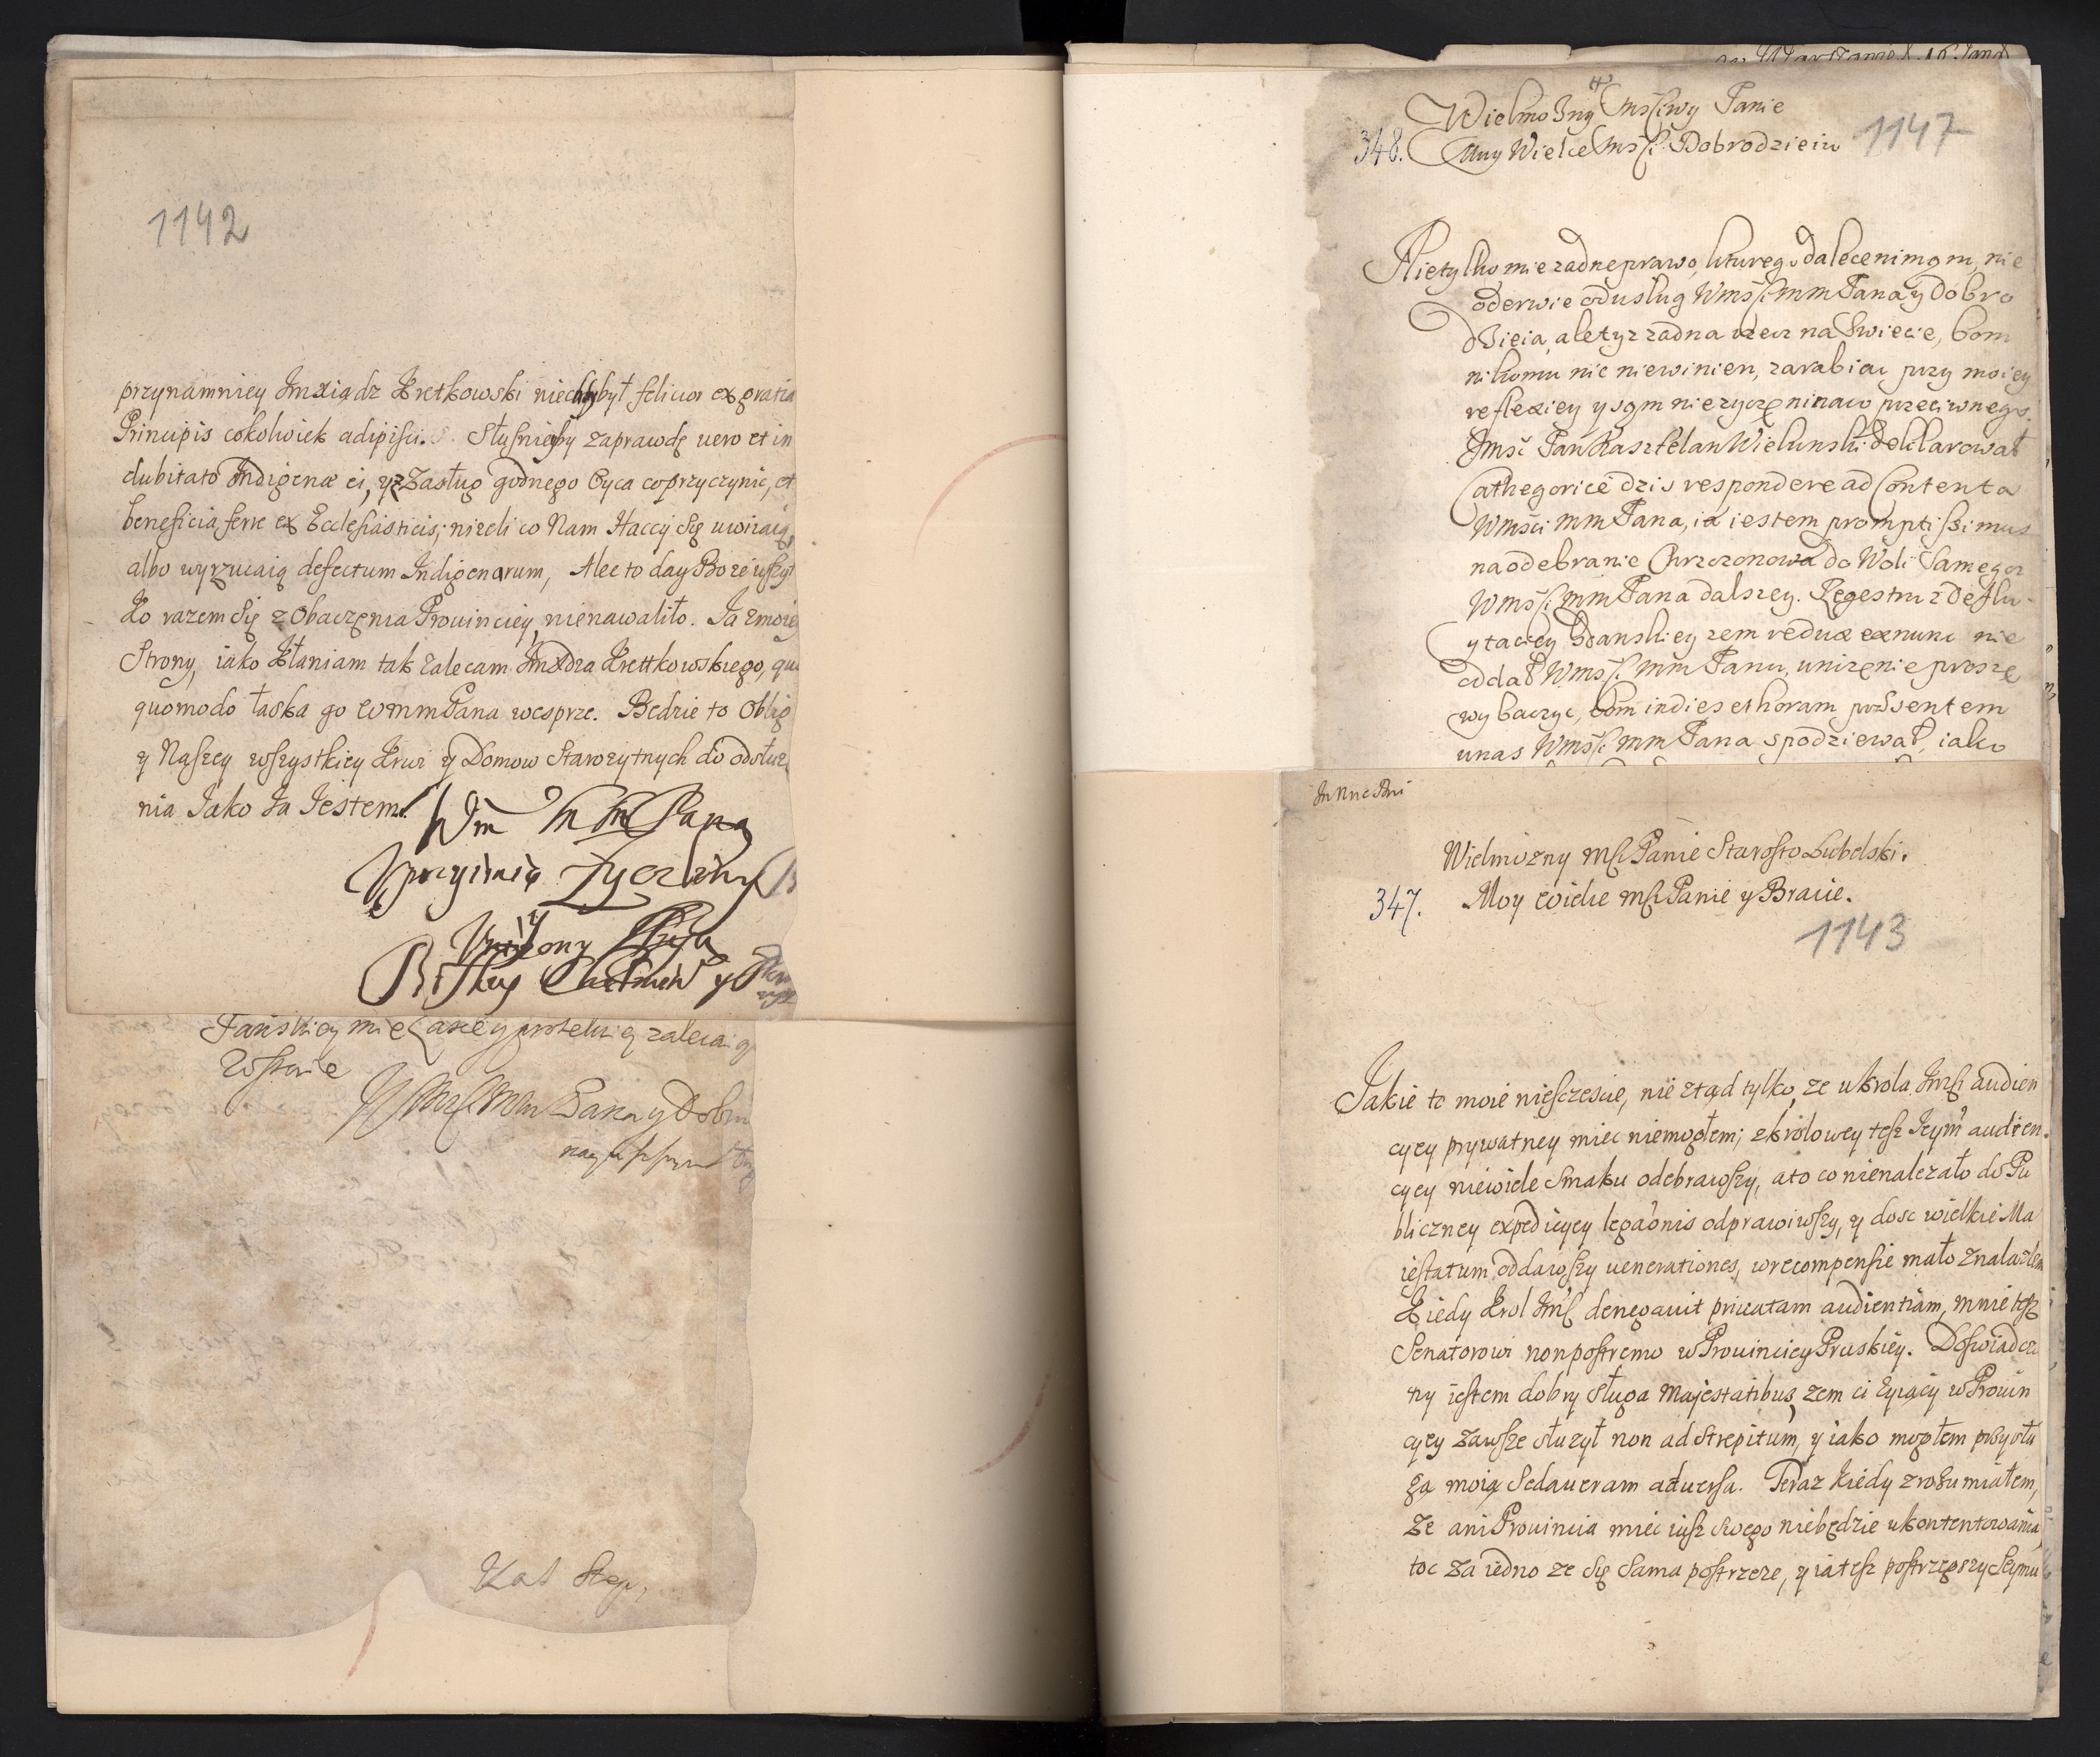 1142
przynamniey Imxiądz Kretkowski niechby był felicior ex gratia
Principis cokolwiek adipisci. Słusnieyby zaprawdę vero et in
dubitato Indigenæ ei, y z Zasług godnego Oyca co przyczynić, et
beneficia ferre ex Ecclesiasticis; nizeli co Nam Haccy Się uwiiaią,
albo wyrzucaią defectum Indigenarum, Alec to day Boze wszyt
ko razem Się z Obaczenia Prouinciey, nienawaliło. Ja z moiey
Strony, iako kłaniam tak zalecam ImXdza Krettkowskiego, qu
quomodo łaska go WmmPana wesprze. Bedzie to Oblig
y Naszey wszystkiey krwi y Domow Starozytnych do odsłuze
nia Jako Ja Jestem.
Wm M Mf Pana
Uprzyimie Zyczliwy
y
Unizony Sługa
Pański y mię Łasce y protekcię zalecaią
Zostanie
WMsci Mm Pana y Dobro
Kat Step,
1147
Wielmozny Msciwy Panie
348. Muy Wielce Msci Dobrodzieiu
Nietylko mie zadne prawo, kturego dalece nimom, nie
oderwie od usług Wmsci mm Pana y Dobro
dzieia, ale tyz zadna rzecz na Swiecie, bom
nikomu nic niewinien, zarabiac przy moiey
reflexiey y som niezyczeninaw przeciwnego.
Jmsc Pan Kasztelan Wielunski deklarowal
Cathegorice dzis respondere ad Contenta
Wmsci mm Pana, ia iestem promptissimus
na odebranie Chrzczonowa do Woli Samego
Wmsci mm Pana dalszey. Regestru z Deflu
ytaciey Gdanskiey zem redux ex nunc nie
oddał Wmsci mm Panu, unizenie prosze
wybaczyc, bom in dies et horam præsentem
u nas Wmsci mm Pana spodziewał, iako
Wielmozny Msci Panie Starosto Lubelski.
347. Moy wielce msci Panie y Bracie.
1143
Jakie to moie niesczescie, nie ztąd tylko, ze u krola Jmsci audien
cyey prywatney miec niemogłem; z krolowey tesz Jeym audien
cyey niewiele Smaku odebrawszy, a to co nienalezało do Pu
bliczney expedicyey legaonis odprawiwszy, y dosc wielkie Ma
iestatum oddawszy uenerationes, w recompensie mało znalazłem
Kiedy krol Jmsc denegauit priuatam audientiam, mnie tesz
Senatorowi non postremo w Prouinciey Pruskiey. Doswiadczo
ny iestem dobry sługa Majestatibus, zem ci zyiący w Prouin
cyey zawsze słuzył non ad Strepitum, y iako mogłem przysłu
gą moią Sedaueram aduersa. Teraz kiedy zrozumiałem,
Ze ani Prouincia miec iusz swego niebędzie ukontentowania,
toc za iedno ze Się Sama postrzeze, y ia tesz postrzegszy Seymu